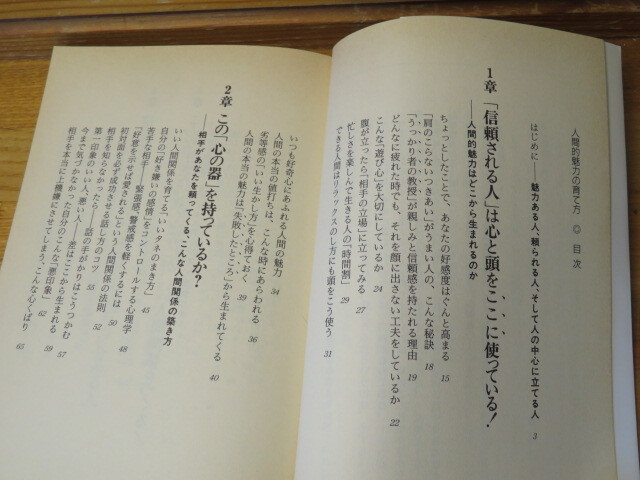 人間的魅力の育て方 ◎ 目次
はじめに——魅力ある人、頼られる人、そして人の中心に立てる人 3
1章 「信頼される人」は心と頭をここに使っている!
——人間的魅力はどこから生まれるのか
ちょっとしたことで、あなたの好感度はぐんと高まる 15
「肩のこらないつきあい」がうまい人の、こんな秘訣 18
「うっかり者の教授」が親しみと信頼感を持たれる理由 19
どんなに疲れた時でも、それを顔に出さない工夫をしているか 22
こんな「遊び心」を大切にしているか 24
腹が立ったら「相手の立場」に立ってみる 27
忙しさを楽しんで生きる人の「時間割」 29
できる人間はリラックスのし方にも頭をこう使う 31
いつも好奇心にあふれる人間の魅力 34
人間の本当の値打ちは、こんな時にあらわれる 36
劣等感の「いい生かし方」を心得ておく 39
人間の本当の魅力は「失敗したところ」から生まれてくる 40
2章 この「心の器」を持っているか?
——相手があなたを頼ってくる、こんな人間関係の築き方
いい人間関係を育てる、いいタネのまき方 45
自分の「好き嫌いの感情」をコントロールする心理学 48
苦手な相手——緊張感、警戒感を軽くするには 50
「好意を示せば愛される」という人間関係の法則 52
初対面を必ず成功させる話し方のコツ 55
相手を知らなかったら——話の手がかりはこうつかむ 57
第一印象のいい人、悪い人——差はここから生まれる 59
今まで気づかなかった自分のこんな「悪印象」 62
相手を本当に上機嫌にさせてしまう、こんな心くばり 65